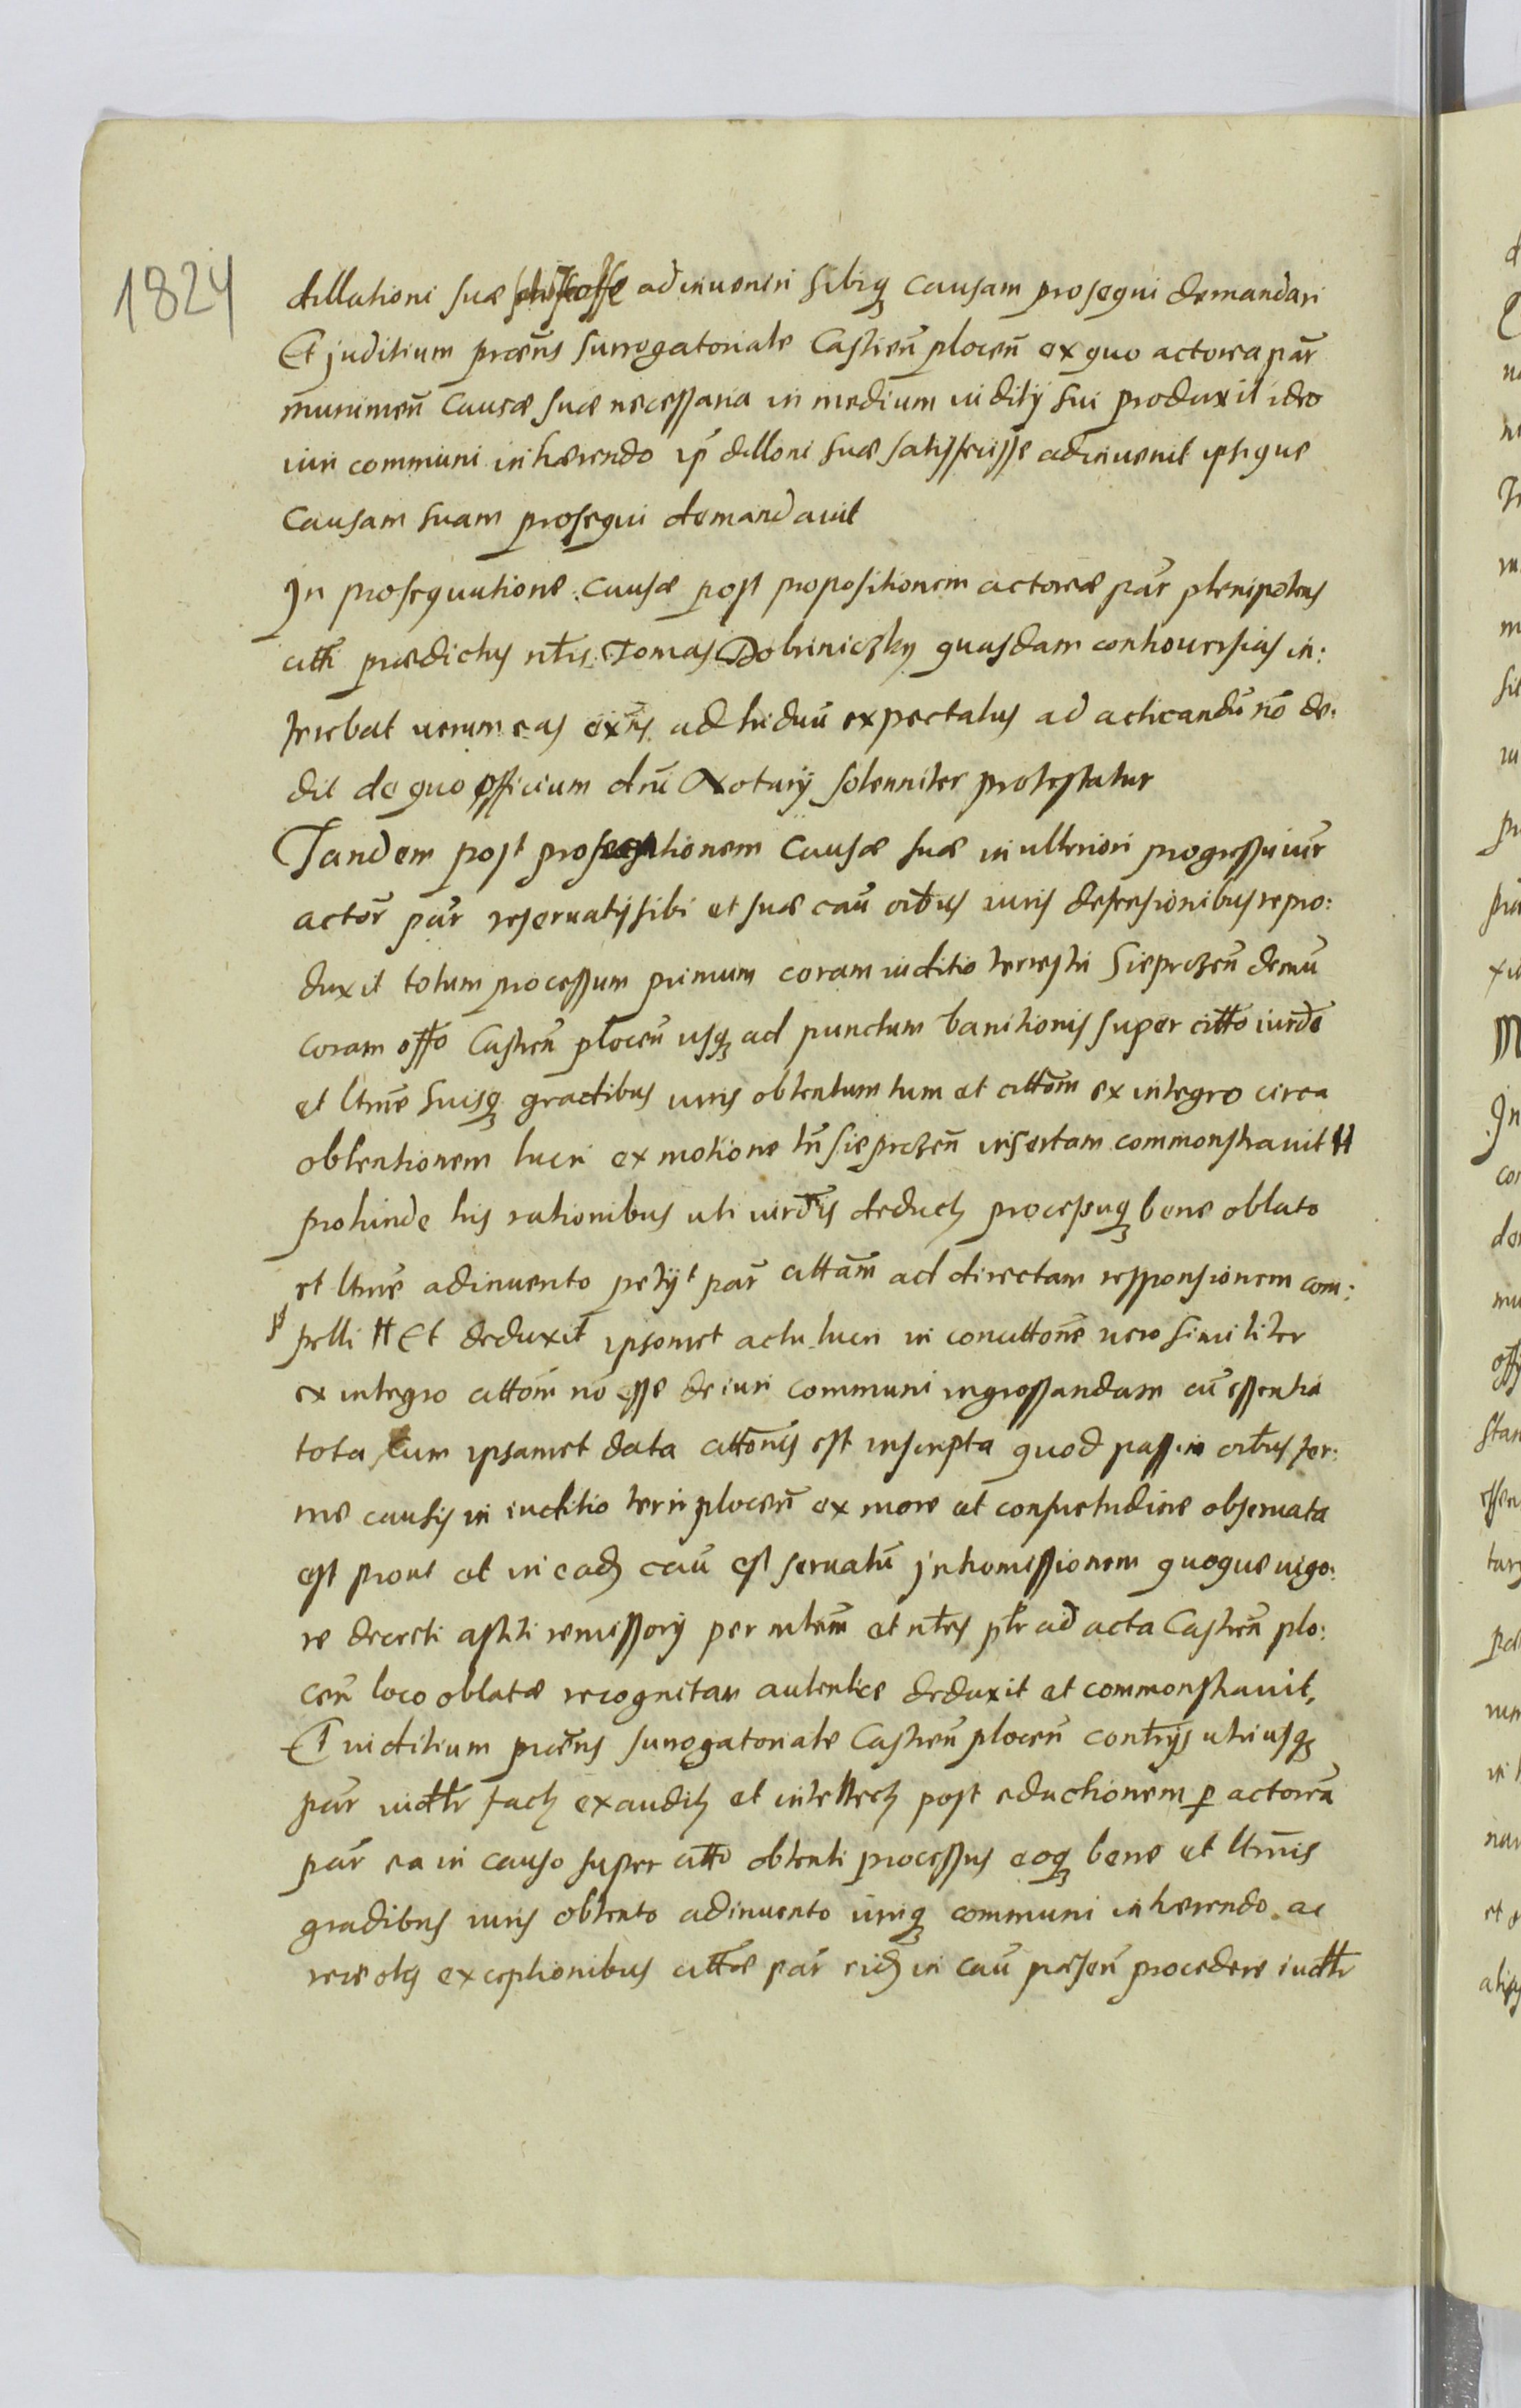 1824
dillationi suæ adinveniri sibiq causam prosequi demandari
Et juditium præns surrogatoriale Castren plocen ex quo actorea par
munimen causæ suæ necessaria in medium iuditÿ sui produxit ideo
iuri communi inhærendo ip dilloni suæ satisfecisse adinvenit ipsique
causam suam prosequi demandavit
In prosequutione causæ post propositionem actoreæ par plenipotens
citti prædictus nlis Tomas Dobrniczky quasdam controversias in:
ferebat verum eas exns ad triduu expectatus ad acticandu no de:
dit de quo officium dni Notarÿ solenniter protestatur
Tandem post prosequtionem causæ suæ in ulteriori progressu iur
actor par reservatis sibi et suæ cau oibus iuris defensionibus repro:
duxit totum processum primum coram iuditio terrestri Sieprczen demu
coram offo Castren plocen usq ad punctum banitionis super citto iurde
et ltme suisq gradibus iuris obtentum tum et cittom ex integro circa
obtentionem lucri ex motione tri Sieprczen insertam commonstravit #
prohinde his rationibus uti iurdis deducts processuq bene oblato
et ltme adinvento petÿt par cittam ad directam responsionem com:
pelli # Et deduxit ipsomet actu lucri in concittone vero similiter
ex integro cittom no esse de iuri communi ingrossandam cu essentia
tota cum ipsamet data cittonis est inscripta quod passim oibus fer:
me causis in iuditio terri plocen ex more et consuetudine observata
est prout et in eadz cau est servatu Intromissionem quoque vigo:
re decreti astiti remissorÿ per mlem et nles ptr ad acta Castren plo:
cen loco oblatæ recognitam autentice deduxit et commonstravit,
Et iuditium præns surrogatoriale Castren plocen contrijs utriusq
par iudtr facts exaudits et intellects post eductionem p actorea
par ea in causo super citto obtenti processus eoq bene et ltmis
gradibus iuris obtento adinvento iuriq communi inhærendo ac
reiectis exceptionibus cittæ par eidz in cau præsen procedere iudtr